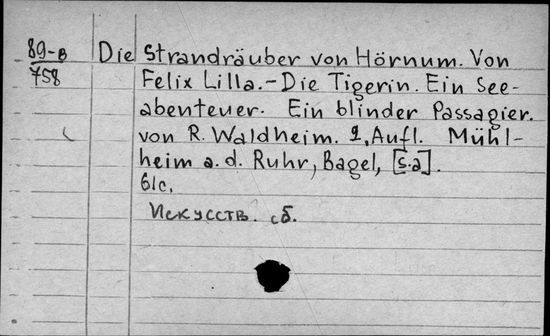 89-в Die Strandräuber von Hörnum. Von
758 Felix Lilla.-Die Tigerin. Ein See-
abenteuer. Ein blinder Passagier.
von R. Waldheim. 2, Aufl. Mühl-
heim a. d. Ruhr, Bagel, [s.a].
61c.
Искусств. сб.